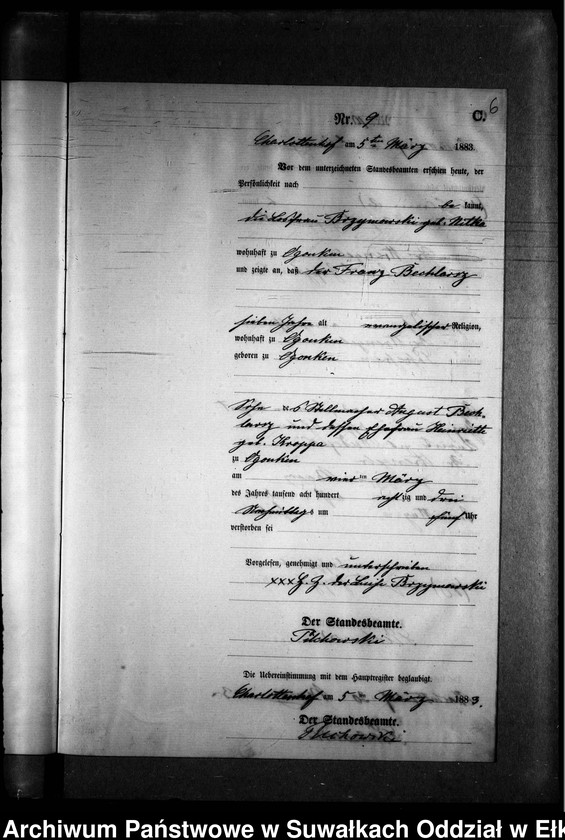 6
Nr. 9 C.
Charlottenhof am 5ten März 1883.
Vor dem unterzeichneten Standesbeamten erschien heute, der
Persönlichkeit nach
be kannt,
die Losfrau Brzymowski geb. Nitka
wohnhaft zu Ogonken
und zeigte an, daß der Franz Bechlarz
sieben Jahre alt evangelischer Religion,
wohnhaft zu Ogonken
geboren zu Ogonken
Sohn des Stellmacher August Bech-
larz und dessen Ehefrau Heinriette
geb. Kroppa
zu Ogonken
am vier ten März
des Jahres tausend acht hundert acht zig und drei
Nachmittags um fünf Uhr
verstorben sei
Vorgelesen, genehmigt und unterschrieben
xxx H. Z. der Luise Brzymowski
Der Standesbeamte.
Pilchowski
Die Uebereinstimmung mit dem Hauptregister beglaubigt.
Charlottenhof am 5 März 1883.
Der Standesbeamte.
Pilchowski
Archiwum Państwowe w Suwałkach Oddział w Ełk